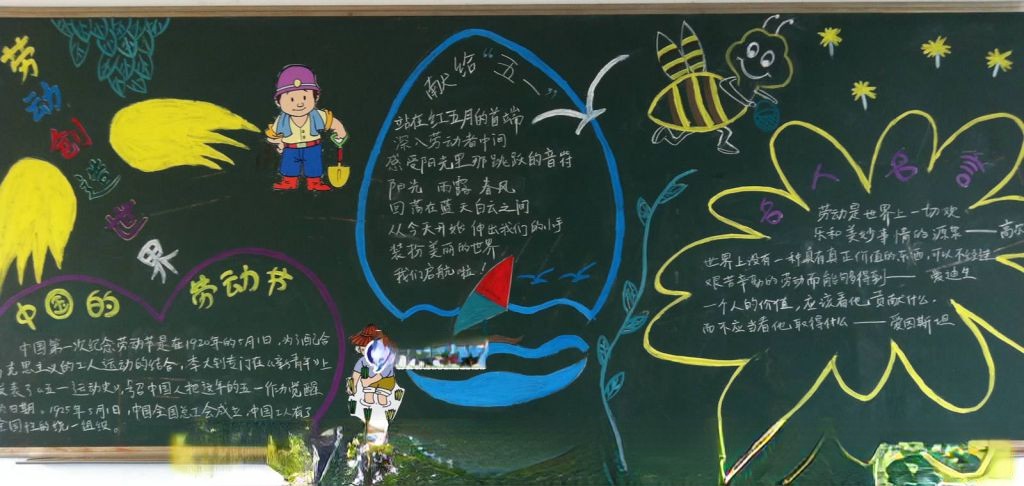 劳动创造世界
中国的
劳动节
中国第一次纪念劳动节是在1920年的5月1日,为了配合
克思主义的工人运动的结合,李大钊专门在《新青年》上
发表了《五一运动史》,号召中国人把这年的五一作为觉醒
的日期。1925年5月1日,中国全国总工会成立,中国工人有了
全国性的统一组织。
献给“五一”
站在红五月的首端
深入劳动者中间
感受阳光里那跳跃的音符
阳光 雨露 春风
回荡在蓝天白云之间
从今天开始 伸出我们的小手
装扮美丽的世界
我们启航啦!
名人名言
劳动是世界上一切欢
乐和美妙事情的源泉——高尔
世界上没有一种具有真正价值的东西,可以不经过
艰苦辛勤的劳动而能够得到——爱迪生
一个人的价值,应该看他贡献什么,
而不应当看他取得什么——爱因斯坦